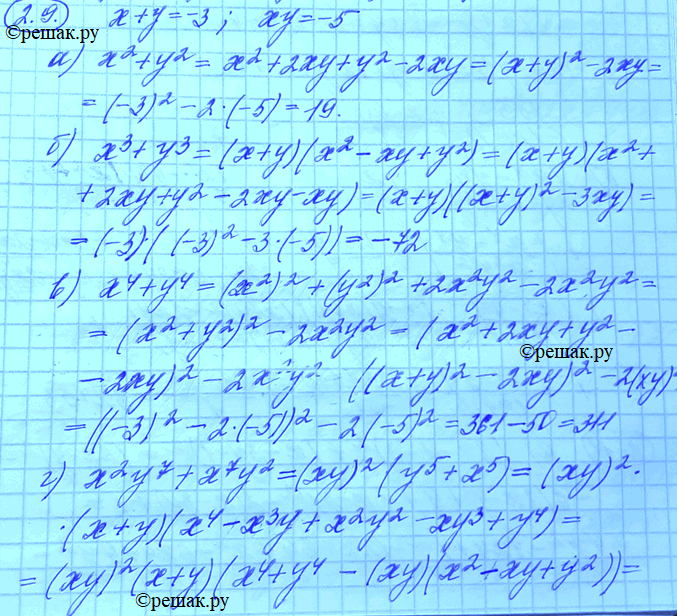 2.9. x+y=-3; xy=-5
©решак.ру
а) x²+y² = x²+2xy+y²-2xy=(x+y)²-2xy=
=(-3)²-2·(-5)=19.
б) x³+y³=(x+y)(x²-xy+y²)=(x+y)(x²+
+2xy+y²-2xy-xy)=(x+y)((x+y)²-3xy)=
=(-3)·((-3)²-3·(-5))=-72
в) x⁴+y⁴=(x²)²+(y²)²+2x²y²-2x²y²=
=(x²+y²)²-2x²y²=(x²+2xy+y²-
©решак.ру
-2xy)²-2x²y² ((x+y)²-2xy)²-2(xy)²
=((-3)²-2·(-5))²-2(-5)²=361-50=311
г) x²y⁷+x⁷y²=(xy)²(y⁵+x⁵)=(xy)²·
·(x+y)(x⁴-x³y+x²y²-xy³+y⁴)=
=(xy)²(x+y)(x⁴+y⁴-(xy)(x²-xy+y²))=
©решак.ру